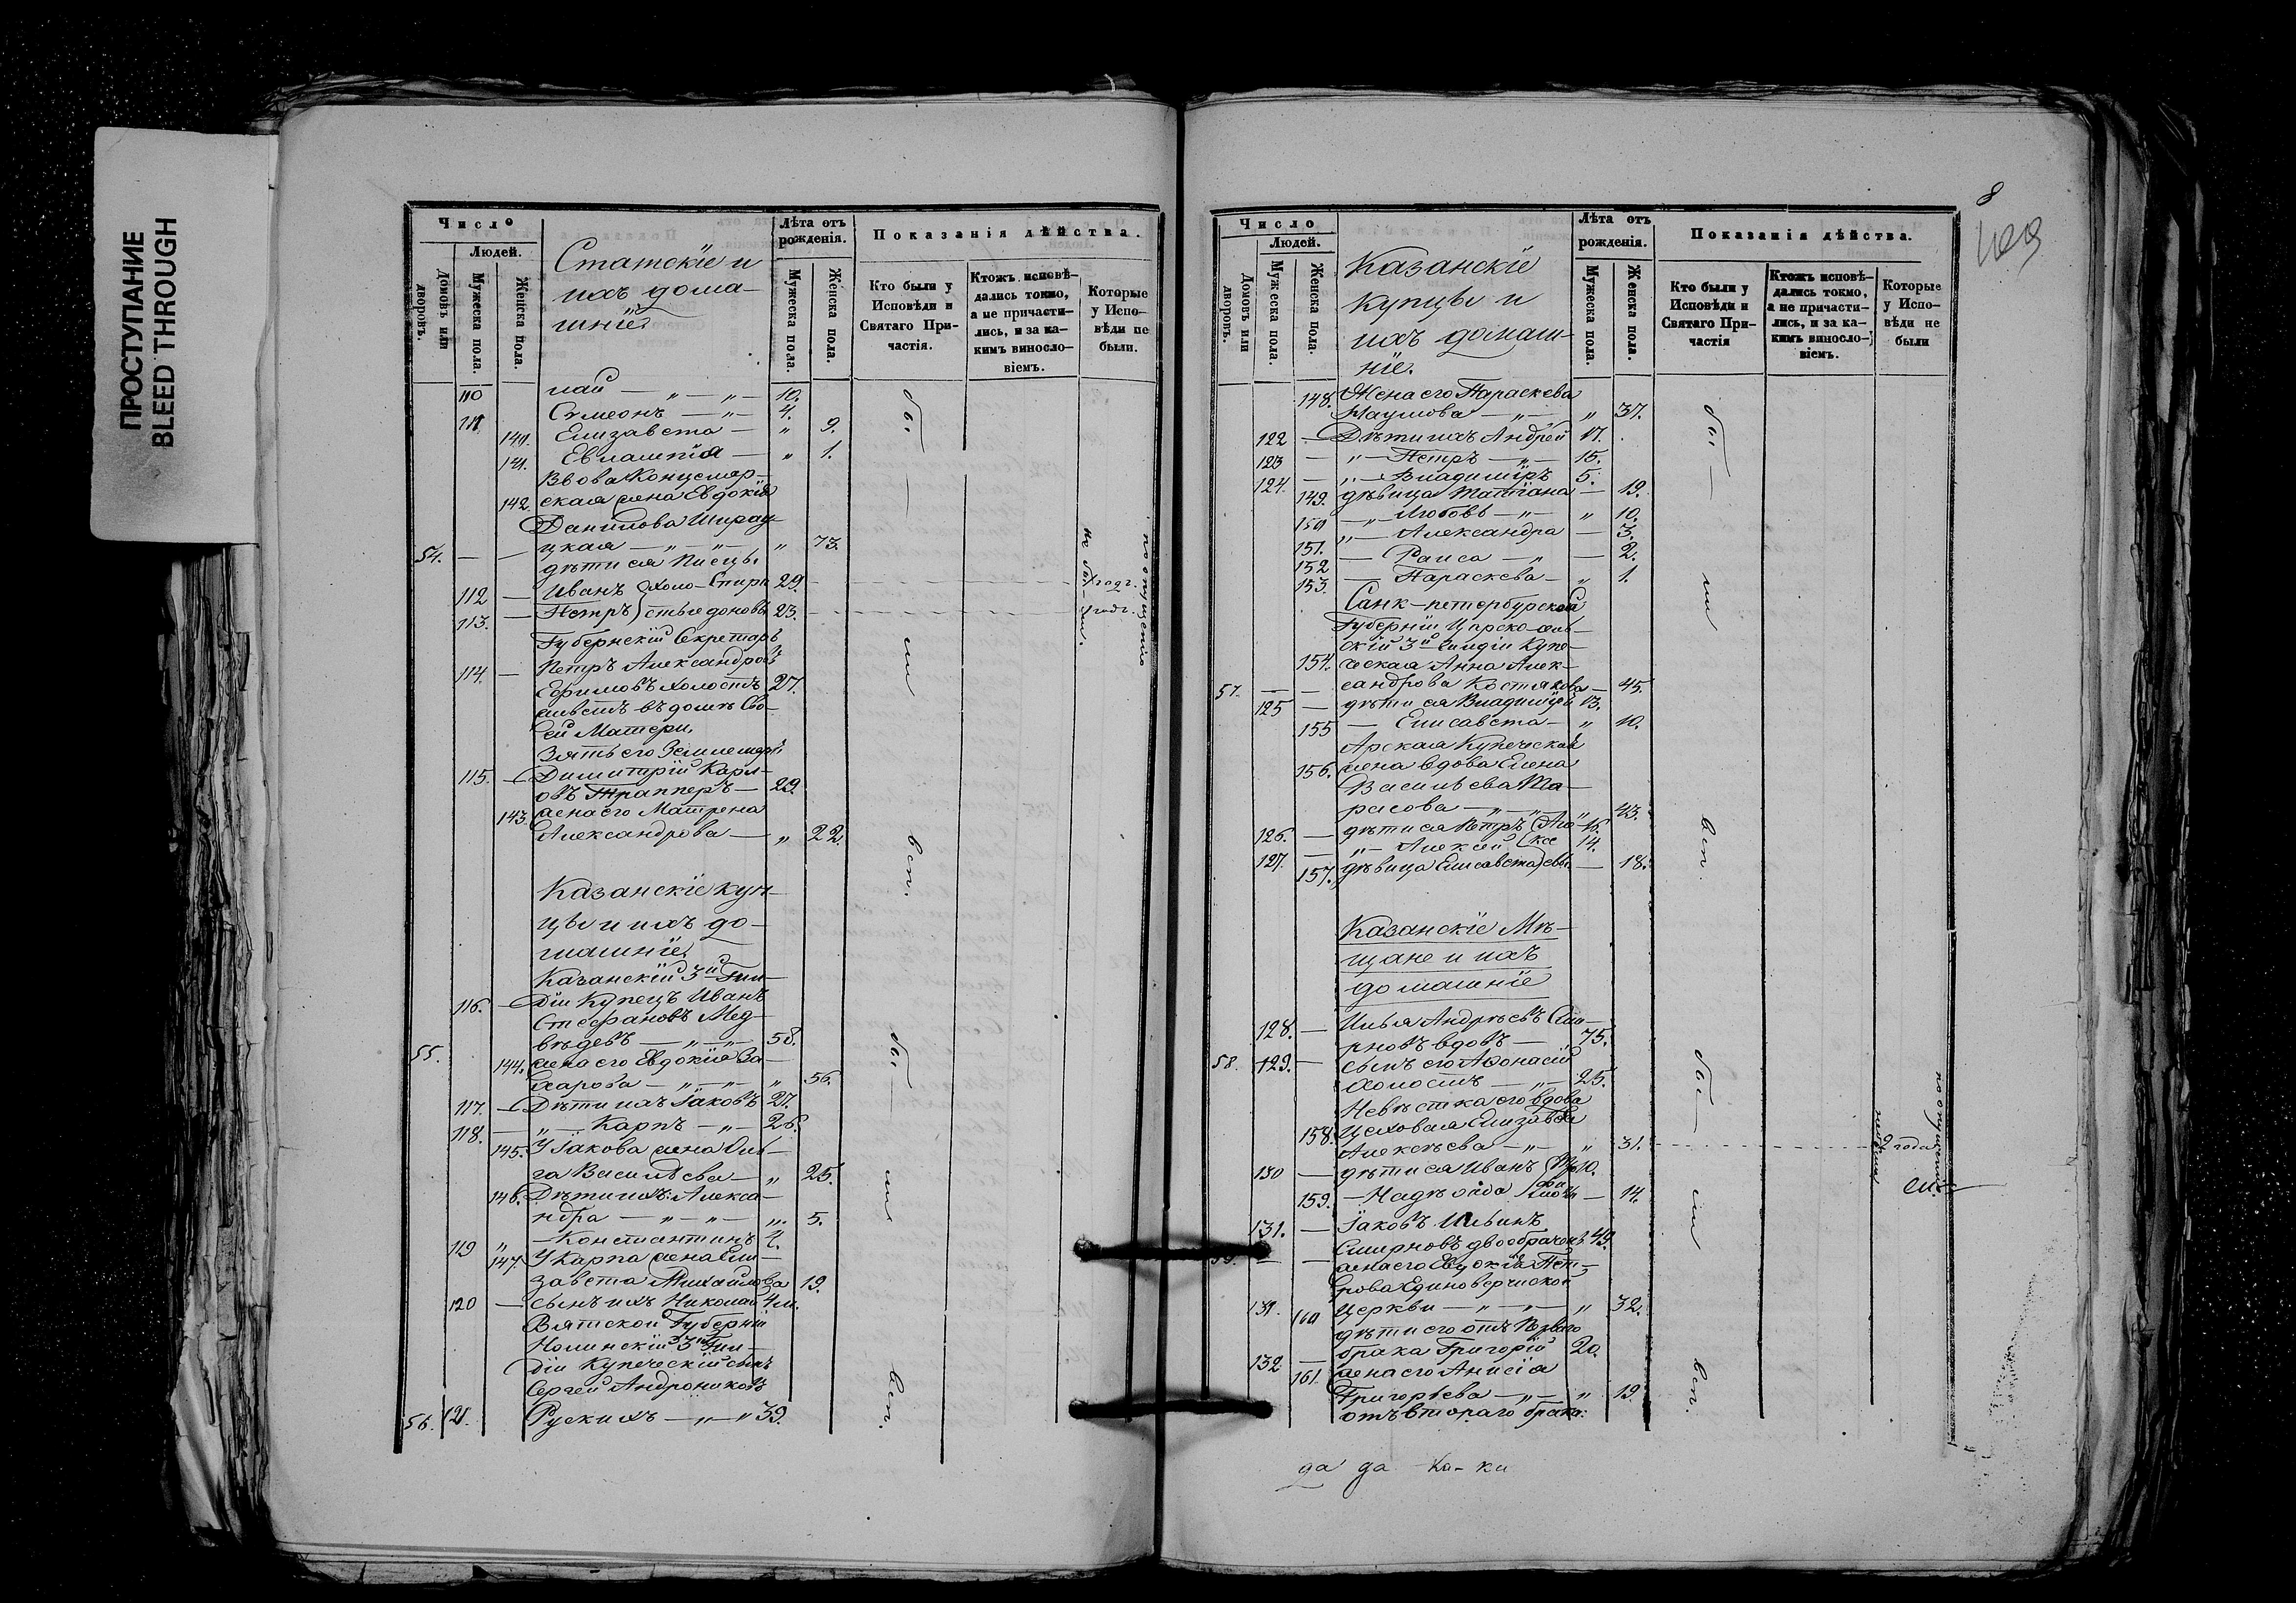 ПРОСТУПАНИЕ
BLEED THROUGH
Число
Людей.
Домовъ или дворовъ.
Мужеска пола.
Женска пола.
Статскіе и
ихъ дома-
шніе
Лѣта отъ рожденія.
Мужеска пола.
Женска пола.
Показанія дѣйства.
Кто были у Исповѣди и Святаго Причастія.
Ктожъ исповѣдались токмо, а не причастились, и за какимъ винословіемъ.
Которые у Исповѣди не были.
110 лай — „ — „ — 10.
111 Сѵмеонъ — „ — 4.
140. Елизавета — „ 9.
141. Евлампія — „ 1.
Вдова Концеляр-
142. ская жена Евдокія
Данилова
54. — — цкая — „ — „ — „ 73.
дѣти ея Писцы
112 — Иванъ Холо- Спири 29.
113. — Петръ стые доновы 23.
Губернскій Секретарь
114. — Петръ Александровъ
Ефимовъ холостъ 27.
живетъ въ домѣ Сво-
ей Матери.
Зять его Землемеръ
115. — Димитрій Карл-
овъ Трапперъ — 29.
143. жена его Матрена
Александрова — „ 22.
бы — ли вст.
не были по опущенію
Казанскіе куп-
цы и ихъ до-
машніе
Казанскій 3й Гил-
116. — діи Купецъ Иванъ
Стефановъ Мед-
55. вѣдевъ — „ — „ — 58.
144. жена его Евдокія За-
харова — „ — „ — „ 56.
117. — Дѣти ихъ Іаковъ 27.
118. — „ — Карпъ — „ — 26.
145. У Іакова жена Оль-
га Васильева — „ 25.
146. Дѣти ихъ: Алекса-
ндра — „ — „ — „ 5.
119 „ — Константинъ 4.
147. У Карпа жена Ели-
завета Михайлова 19.
120 — сынъ ихъ Николай 4 м.
Вятской Губерніи
Нолинскій 3й Гил-
діи Купеческій сынъ
Сергей Андрониковъ
56. 121. Рускихъ — „ — „ 39.
бы — ли вст.
8
Число
Людей.
Домовъ или дворовъ.
Мужеска пола.
Женска пола.
Казанскіе
купцы и
ихъ домаш-
ніе.
Лѣта отъ рожденія.
Мужеска пола.
Женска пола.
Показанія дѣйства.
Кто были у Исповѣди и Святаго Причастія
Ктожъ исповѣдались токмо, а не причастились, и за какимъ винословіемъ.
Которые у Исповѣди не были
148. Жена его Параскева
Наумова — „ — „ 37.
122 — Дѣти ихъ Андрей 17.
123 — „ — Петръ — „ — 15.
124. — „ — Владиміръ 5.
149. дѣвица Татіана — 19.
150 — „ — Любовь — „ — „ 10.
151. „ — Александра — 3.
152 — Раиса — „ — 2.
153. — Параскева — „ 1.
Санк-петербурской
Губерніи Царско-сель-
скій 3й Гилдіи Купе-
154. ческая Анна Алек-
57. — — сандрова Костякова — 45.
125 — дѣти ея Владиміръ 13.
155 — Елисавета — „ 10.
Арская Купеческая
156. жена вдова Елена
Васильева Та-
расова — „ — „ — „ 43.
126. — дѣти ея Петръ Але- 16.
127. — „ — Алексѣй ксе 14.
157. дѣвица Елисавета евы — 18.
бы — ли вст.
Казанскіе Мѣ-
щане и ихъ
домашніе
128. — Илья Андреевъ Сми-
рновъ вдовъ — 75.
58. 129. — сынъ его Афонасій
Холостъ — „ — 25.
Невѣстка его вдова
158. Цеховая Елизавета
Алексѣева — „ — „ 31. 2 года
130 — дѣти ея Иванъ 10.
159. — Надежда — 14.
131. — Іаковъ Ильинъ
Смирновъ двообраченъ 49.
59. — — жена его Евдокія Пет-
рова Единоверческой
131. 160 Церкви — „ — „ — „ 32.
дѣти его отъ перваго
132 — брака Григорій 20.
161. жена его Анисія
Григорьева — „ — „ 19.
отъ втораго брака:
бы — ли вст.
да да ка-ки